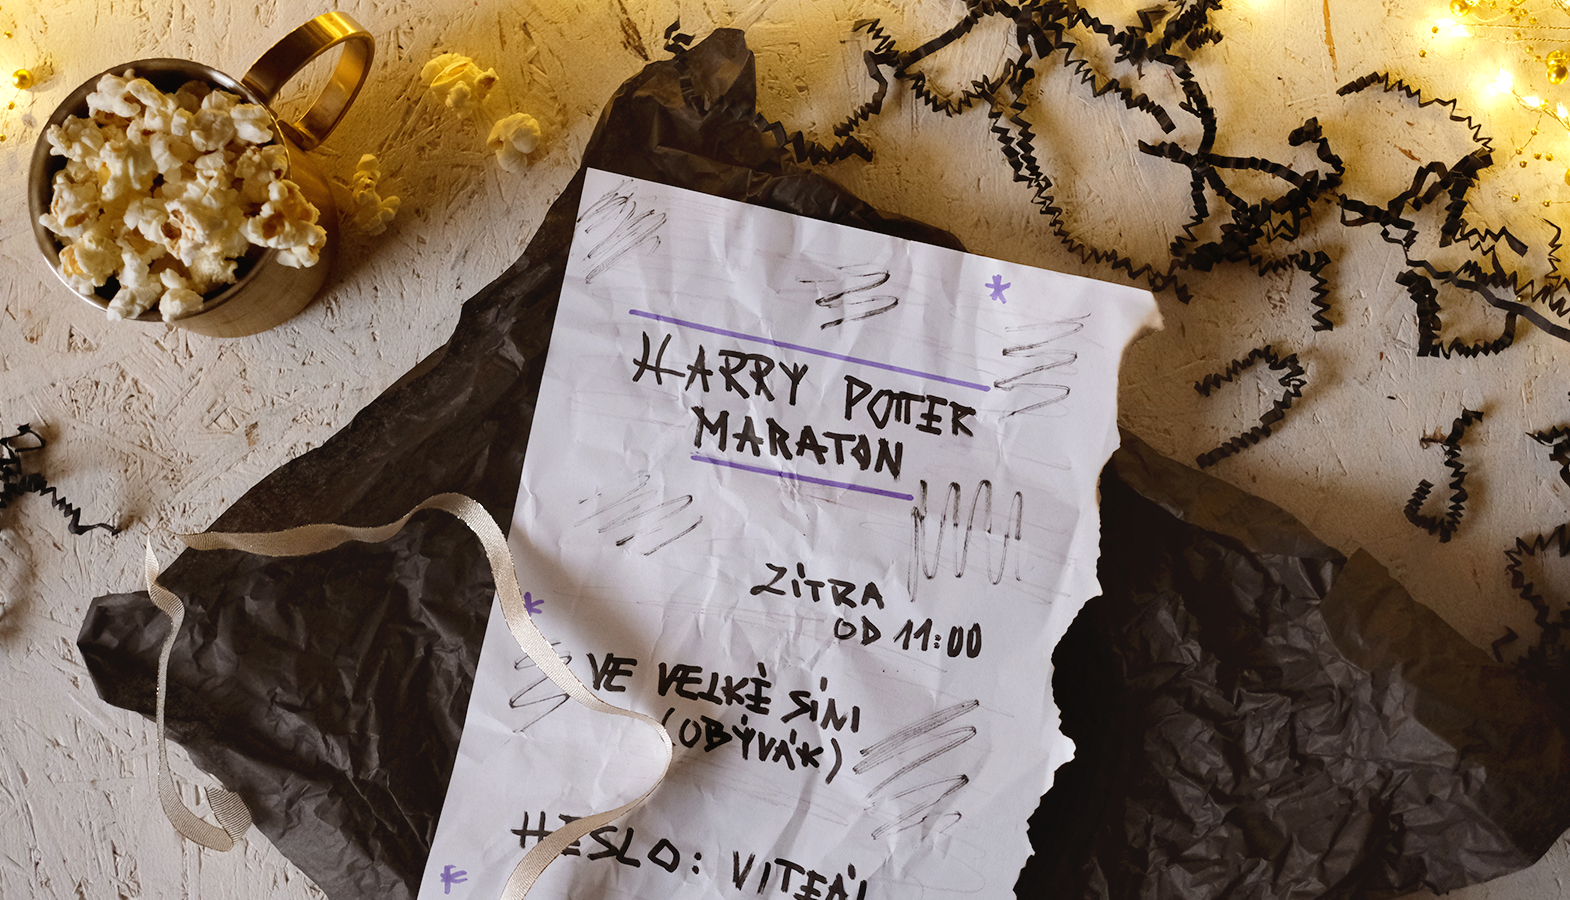 HARRY POTTER
MARATON
ZÍTRA
OD 11:00
VE VELKÉ SÍNI
(OBÝVÁK)
HESLO: